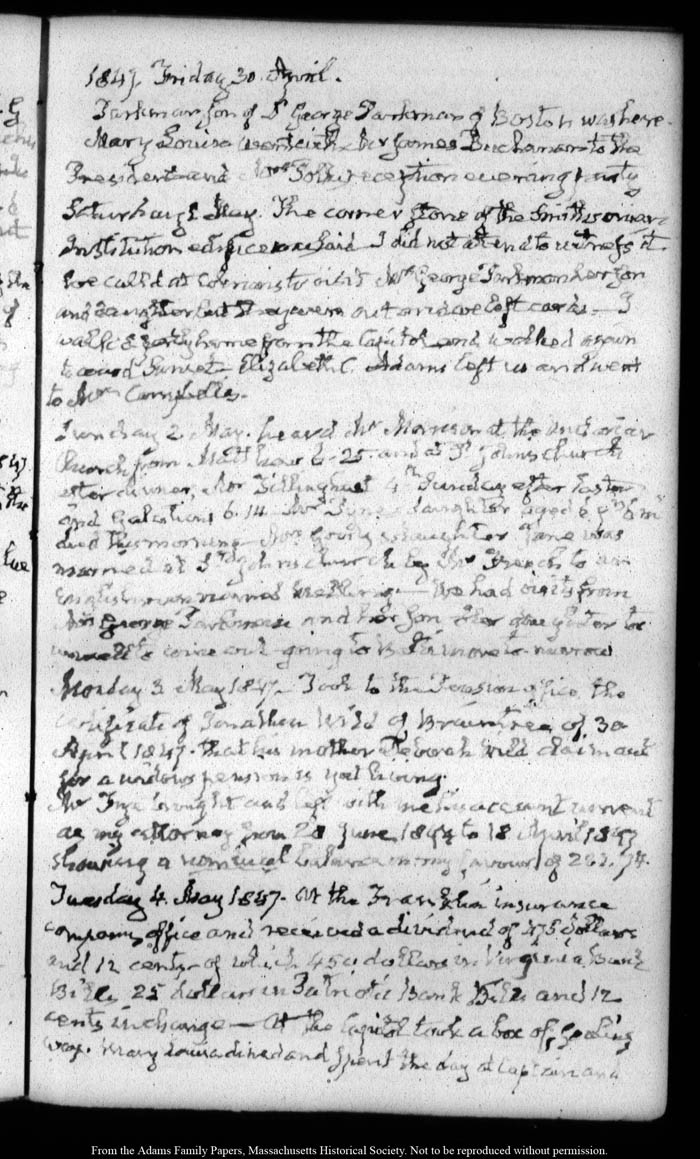 1847. Friday 30. April.
Parkman son of Dr George Parkman of Boston was here.
Mary Louisa went with Mr James Buchanan to the
President and Mrs Polk's reception evening party
Saturday 1. May. The corner stone of the Smithsonian
Institution edifice was laid I did not attend to witness it.
We called at Coleman's to visit Mrs George Parkman her son
and daughter but they were out and we left cards — I
walked early home from the Capitol and walked again
toward Sunset. Elizabeth C. Adams left us and went
to Mrs Campbell's.
Sunday 2. May. heard Mr Morrison at the Unitarian
Church from Matthew 6-25. and at St John's church
after dinner, Mr Tillinghast 4th Sunday after Easter
and Galatians 6.14. daughter aged 6
died this morning — daughter Jane was
married at St John's Church by Mr French to an
Englishman named — We had visits from
Mrs George Parkman and her son Her daughter too
unwell to come out going to Baltimore to-morrow
Monday 3. May 1847. Took to the Pension office, the
certificate of Jonathan Wild of Braintree of 30
April 1847. that his mother Deborah Wild claimant
for a widow's pension is yet living.
Mr Frye brought and left with me his account current
as my attorney from 28 June 1844 to 18 April 1847
showing a nominal balance in my favour of 74.
Tuesday 4. May 1847. At the Franklin insurance
company office and received a dividend of 475 dollars
and 12 cents of which 450 dollars in Virginia Bank
Bills, 25 dollars in Patriotic Bank Bills and 12
cents in change — At the Capitol took a box of Sealing
wax. Mary Louisa dined and spent the day at Captain and
From the Adams Family Papers, Massachusetts Historical Society. Not to be reproduced without permission.